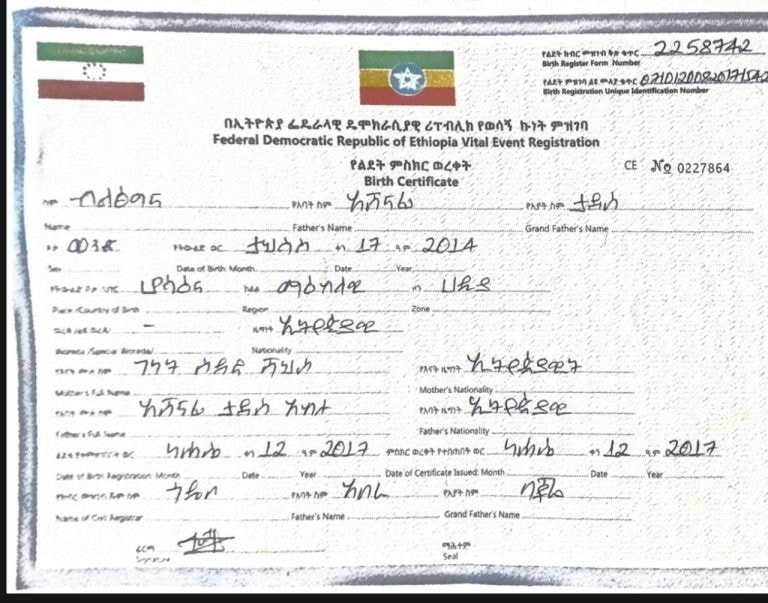 የልደት ክብር መዝገብ ቅጽ ቁጥር 2258742
Birth Register Form Number
የልደት ምዝገባ ልዩ መለያ ቁጥር
Birth Registration Unique Identification Number
በኢትዮጵያ ፌዴራላዊ ዴሞክራሲያዊ ሪፐብሊክ የወሳኝ ኩነት ምዝገባ
Federal Democratic Republic of Ethiopia Vital Event Registration
የልደት ምስክር ወረቀት
Birth Certificate
CE No 0227864
ስም የአባት ስም የአያት ስም ታደሰ
Name Father's Name Grand Father's Name
ፆታ ወንድ የትውልድ ወር ታህሳስ ቀን 17 ዓ.ም 2014
Sex Date of Birth Month Date Year
የትውልድ ቦታ/ሀገር ሆሳዕና ክልል ማዕከላዊ ዞን ሀዲያ
Place/Country of Birth Region Zone
ወረዳ/ልዩ ወረዳ - ዜግነት ኢትዮጵያዊ
Woreda/Special Woreda/ Nationality
የእናት ሙሉ ስም የእናት ዜግነት ኢትዮጵያዊት
Mother's Full Name Mother's Nationality
የአባት ሙሉ ስም ታደሰ የአባት ዜግነት ኢትዮጵያዊ
Father's Full Name Father's Nationality
ልደት የተመዘገበበት ወር ነሐሴ ቀን 12 ዓ.ም 2017 ምስክር ወረቀት የተሰጠበት ወር ነሐሴ ቀን 12 ዓ.ም 2017
Date of Birth Registration Month Date Year Date of Certificate Issued: Month Date Year
የአባት ስም የአያት ስም
Name of Civil Registrar Father's Name Grand Father's Name
ፊርማ ማኅተም
Signature Seal